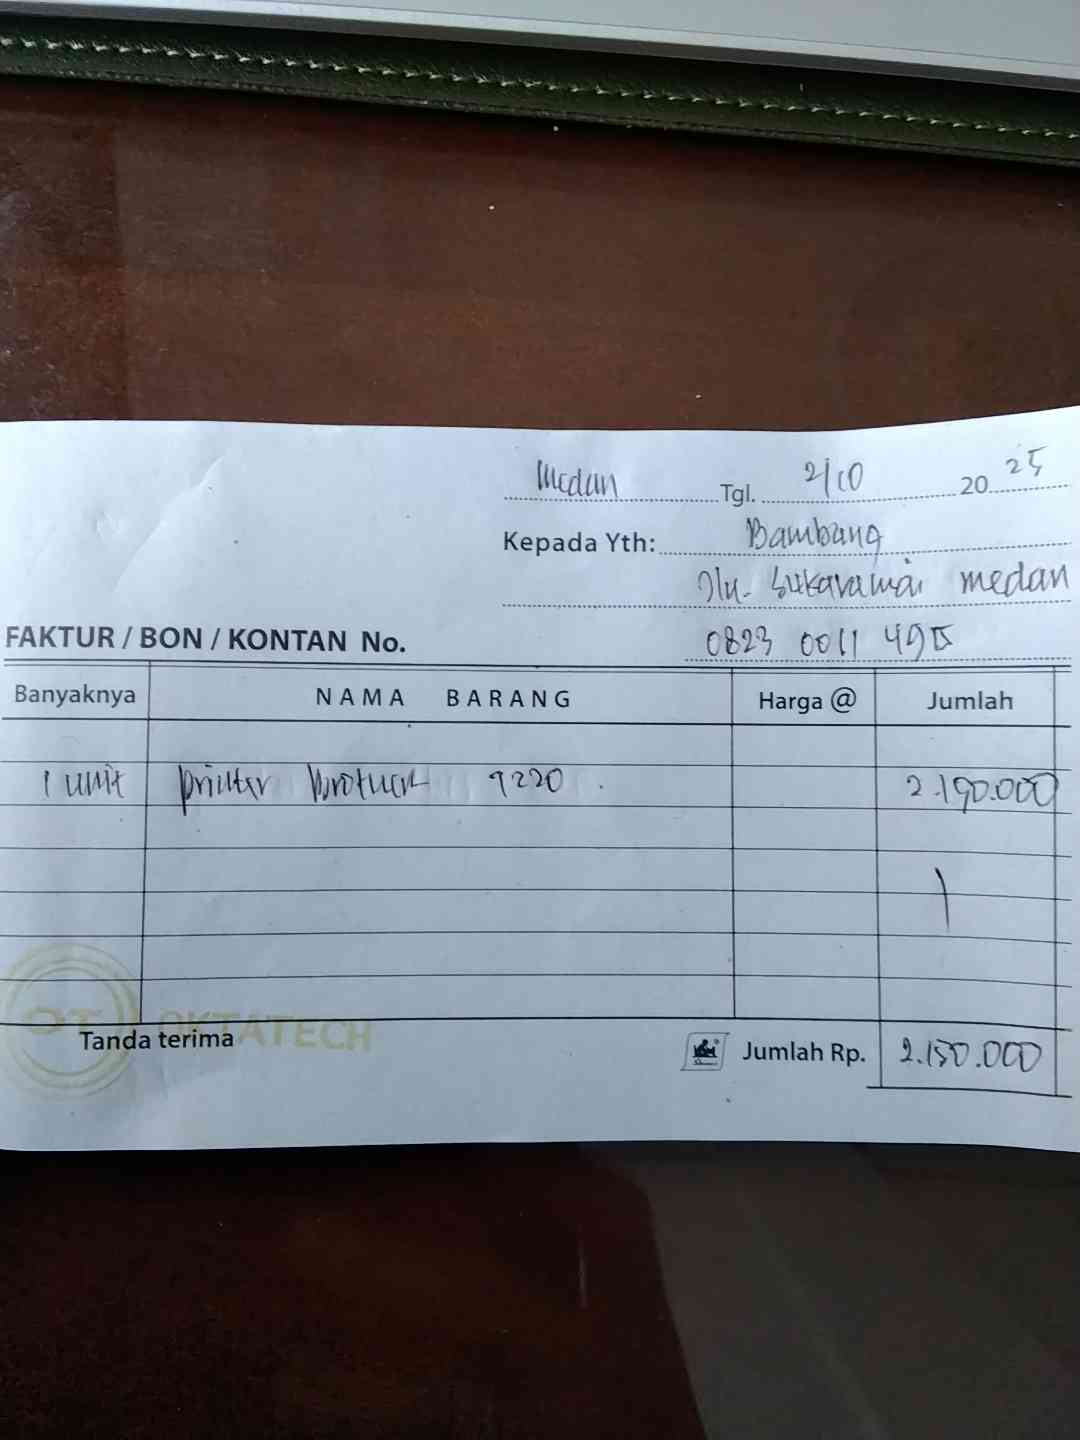 Medan Tgl. 2/10 2025
Kepada Yth: Bambang
Jln. Sukaramai medan
FAKTUR / BON / KONTAN No. 0823 0011 495
Banyaknya NAMA BARANG Harga @ Jumlah
1 unit printer brother T220 2.150.000
OT OKTATECH
Tanda terima Jumlah Rp. 2.150.000